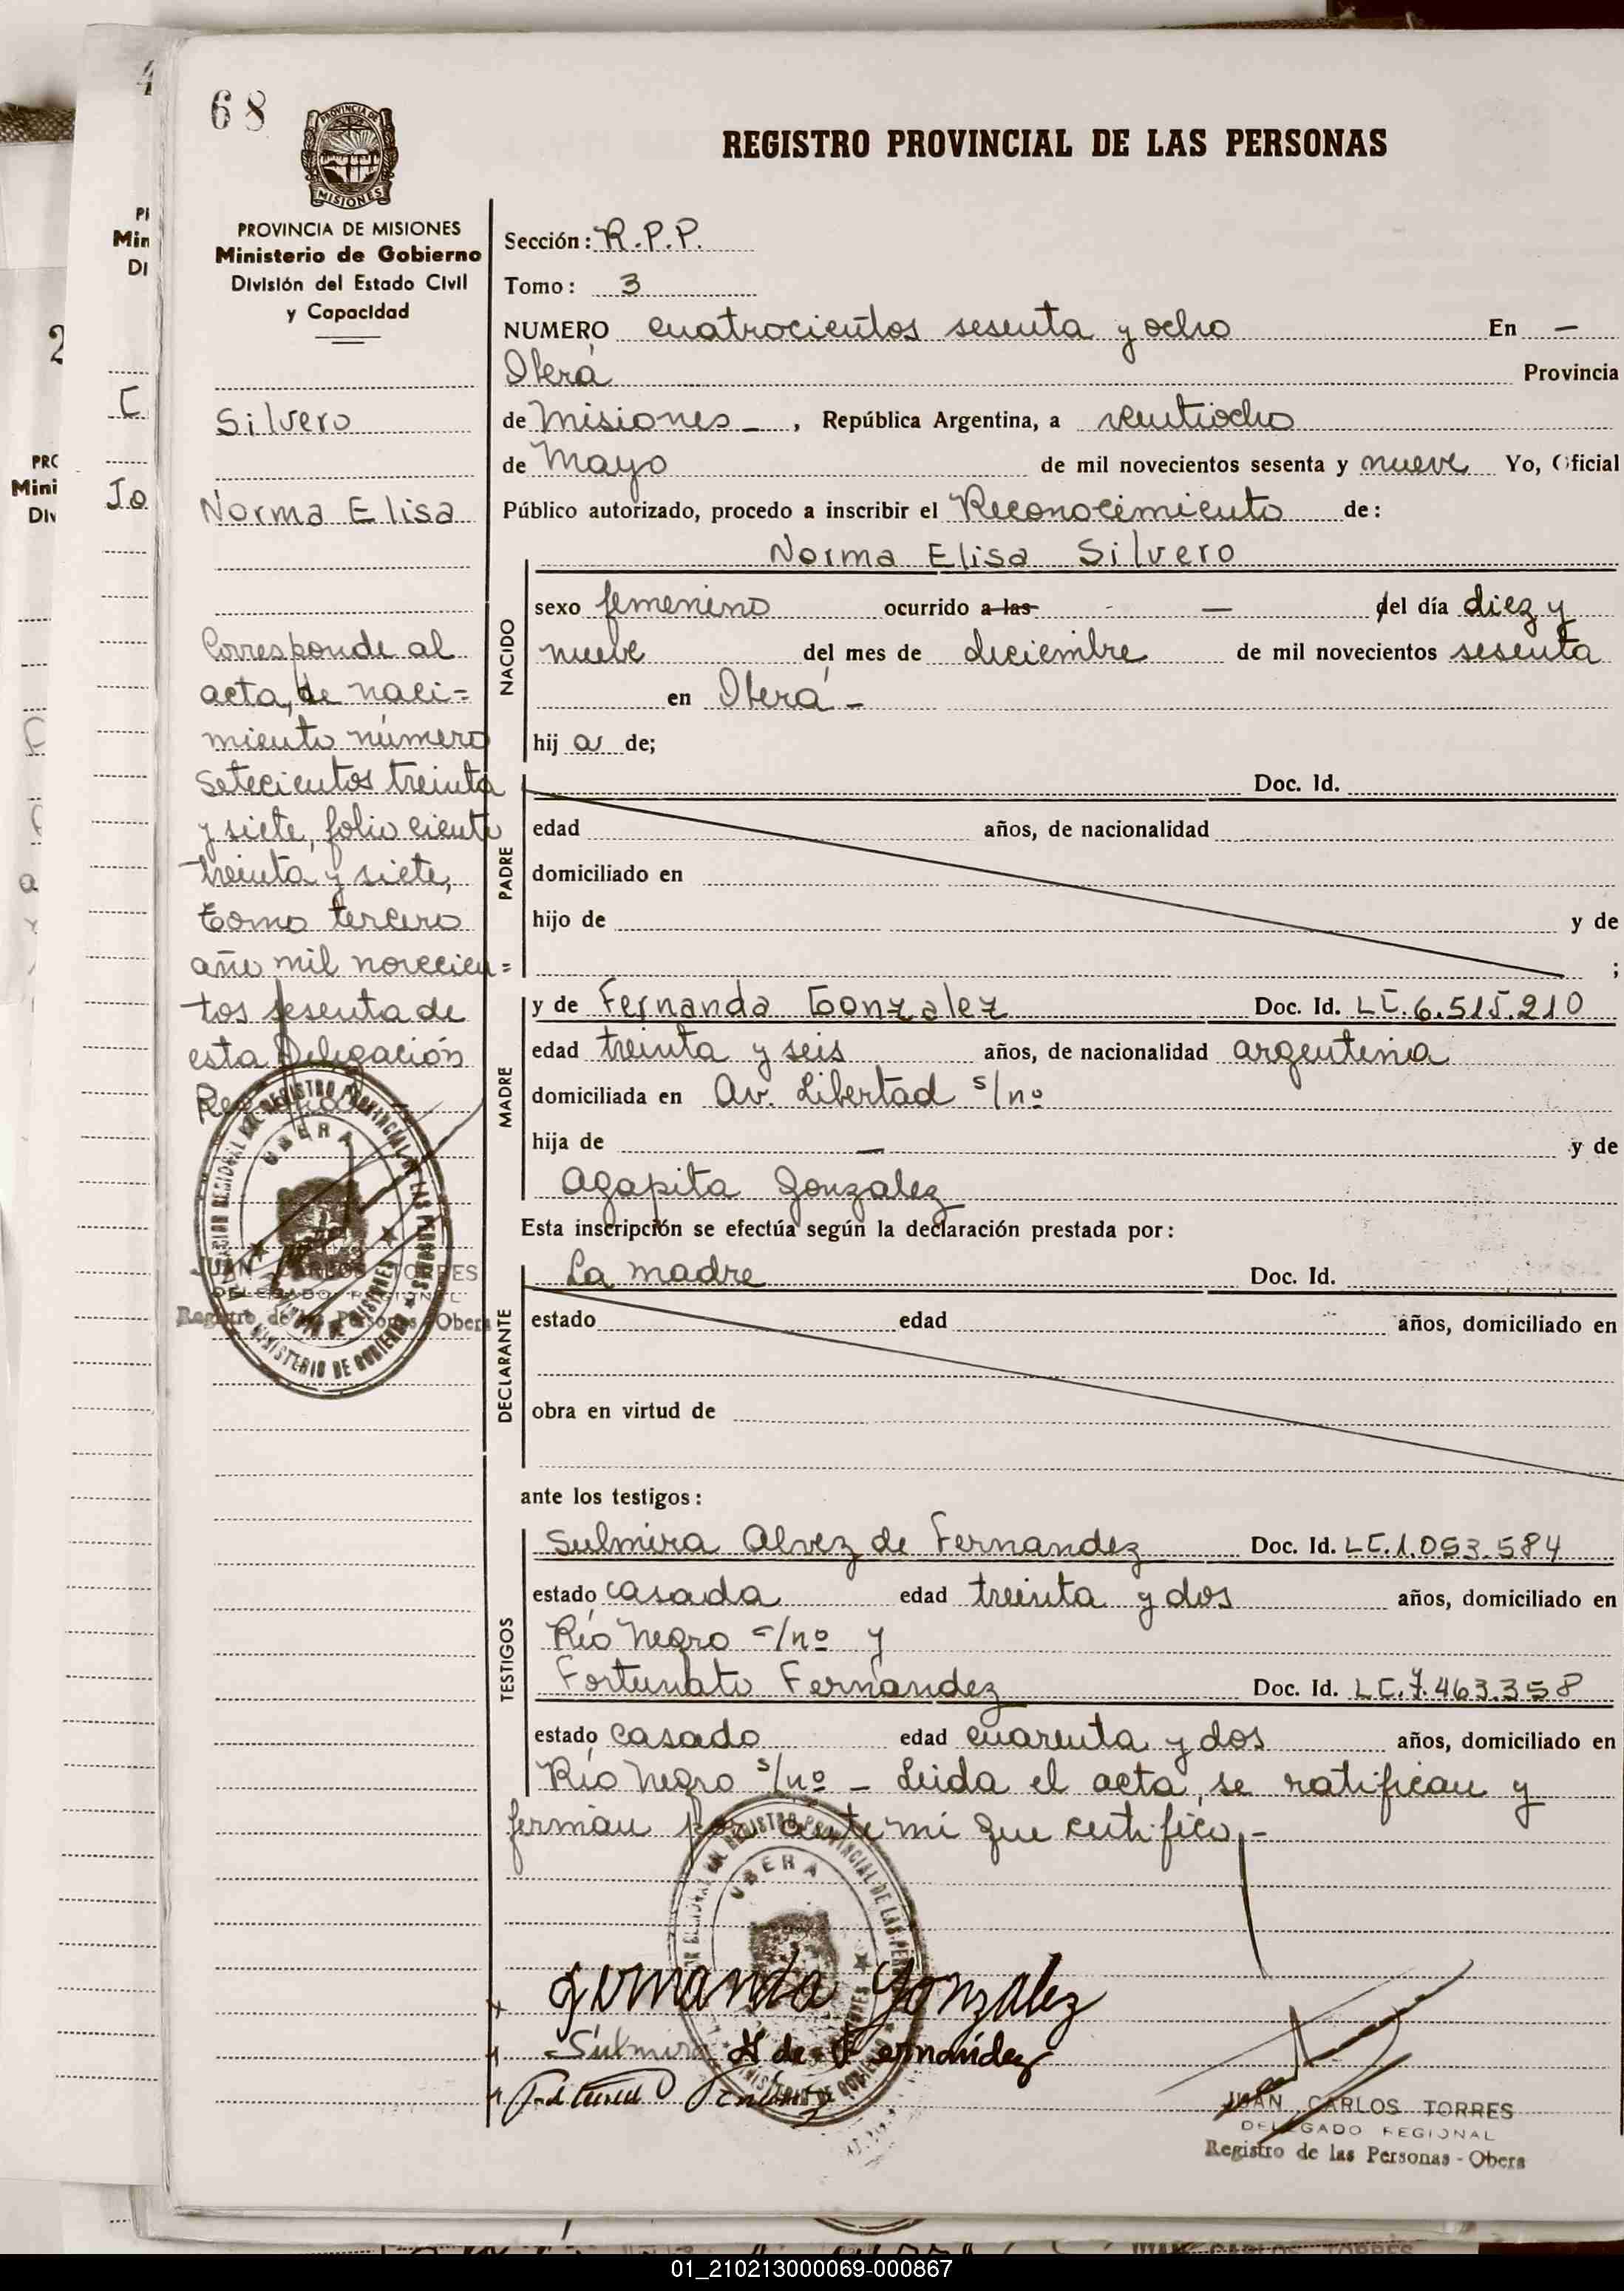 68
PROVINCIA DE
MISIONES
REGISTRO PROVINCIAL DE LAS PERSONAS
PROVINCIA DE MISIONES
Ministerio de Gobierno
División del Estado Civil
y Capacidad
Silvero
Norma Elisa
Corresponde al
acta, de naci=
miento número
setecientos treinta
y siete, folio ciento
treinta y siete,
tomo tercero
año mil novecien=
tos sesenta de
esta Delegación
UBERA
JUAN CARLOS TORRES
DELEGADO REGIONAL
Registro de las Personas - Obera
Sección: R.P.P.
Tomo: 3
NUMERO cuatrocientos sesenta y ocho En —
Oberá Provincia
de Misiones - , República Argentina, a veintiocho
de Mayo de mil novecientos sesenta y nueve Yo, Oficial
Público autorizado, procedo a inscribir el Reconocimiento de:
Norma Elisa Silvero
NACIDO
sexo femenino ocurrido a las - — del día diez y
nueve del mes de diciembre de mil novecientos sesenta
en Oberá -
hij a de;
PADRE
Doc. Id.
edad años, de nacionalidad
domiciliado en
hijo de y de
;
MADRE
y de Fernanda Gonzalez Doc. Id. LC. 6.515.210
edad treinta y seis años, de nacionalidad argentina
domiciliada en Av. Libertad s/nº
hija de — y de
Agapita Gonzalez
Esta inscripción se efectúa según la declaración prestada por:
DECLARANTE
La madre Doc. Id.
estado edad años, domiciliado en
obra en virtud de
ante los testigos:
TESTIGOS
Sulmira Alvez de Fernandez Doc. Id. LC. 1.053.584
estado casada edad treinta y dos años, domiciliado en
Río Negro s/nº y
Fortunato Fernandez Doc. Id. LC. 7.463.358
estado casado edad cuarenta y dos años, domiciliado en
Río Negro s/nº - Leida el acta, se ratifican y
firman por ante mi que certifico, -
UBERA
Fernanda Gonzalez
Sulmira A de Fernández
JUAN CARLOS TORRES
DELEGADO REGIONAL
Registro de las Personas - Obera
01_210213000069-000867